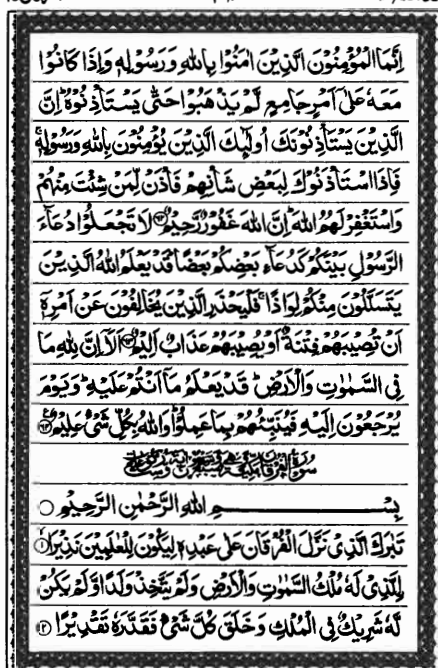 اِنَّمَا الْمُؤْمِنُوْنَ الَّذِيْنَ اٰمَنُوْا بِاللّٰهِ وَرَسُوْلِهٖ وَاِذَا كَانُوْا
مَعَهٗ عَلٰٓى اَمْرٍ جَامِعٍ لَّمْ يَذْهَبُوْا حَتّٰى يَسْتَاْذِنُوْهُ ؕ اِنَّ
الَّذِيْنَ يَسْتَاْذِنُوْنَكَ اُولٰٓئِكَ الَّذِيْنَ يُؤْمِنُوْنَ بِاللّٰهِ وَرَسُوْلِهٖ ۚ
فَاِذَا اسْتَاْذَنُوْكَ لِبَعْضِ شَاْنِهِمْ فَاْذَنْ لِّمَنْ شِئْتَ مِنْهُمْ
وَاسْتَغْفِرْ لَهُمُ اللّٰهَ ؕ اِنَّ اللّٰهَ غَفُوْرٌ رَّحِيْمٌ ﴿۶۲﴾ لَا تَجْعَلُوْا دُعَآءَ
الرَّسُوْلِ بَيْنَكُمْ كَدُعَآءِ بَعْضِكُمْ بَعْضًا ؕ قَدْ يَعْلَمُ اللّٰهُ الَّذِيْنَ
يَتَسَلَّلُوْنَ مِنْكُمْ لِوَاذًا ۚ فَلْيَحْذَرِ الَّذِيْنَ يُخَالِفُوْنَ عَنْ اَمْرِهٖٓ
اَنْ تُصِيْبَهُمْ فِتْنَةٌ اَوْ يُصِيْبَهُمْ عَذَابٌ اَلِيْمٌ ﴿۶۳﴾ اَلَاۤ اِنَّ لِلّٰهِ مَا
فِى السَّمٰوٰتِ وَالْاَرْضِ ؕ قَدْ يَعْلَمُ مَاۤ اَنْتُمْ عَلَيْهِ ؕ وَيَوْمَ
يُرْجَعُوْنَ اِلَيْهِ فَيُنَبِّئُهُمْ بِمَا عَمِلُوْا ؕ وَاللّٰهُ بِكُلِّ شَىْءٍ عَلِيْمٌ ﴿۶۴﴾
سُوْرَةُ الْفُرْقَانِ مَكِّيَّةٌ
بِسْمِ اللّٰهِ الرَّحْمٰنِ الرَّحِيْمِ
تَبٰرَكَ الَّذِىْ نَزَّلَ الْفُرْقَانَ عَلٰى عَبْدِهٖ لِيَكُوْنَ لِلْعٰلَمِيْنَ نَذِيْرًا ﴿۱﴾
اِۨلَّذِىْ لَهٗ مُلْكُ السَّمٰوٰتِ وَالْاَرْضِ وَلَمْ يَتَّخِذْ وَلَدًا وَّلَمْ يَكُنْ
لَّهٗ شَرِيْكٌ فِى الْمُلْكِ وَخَلَقَ كُلَّ شَىْءٍ فَقَدَّرَهٗ تَقْدِيْرًا ﴿۲﴾